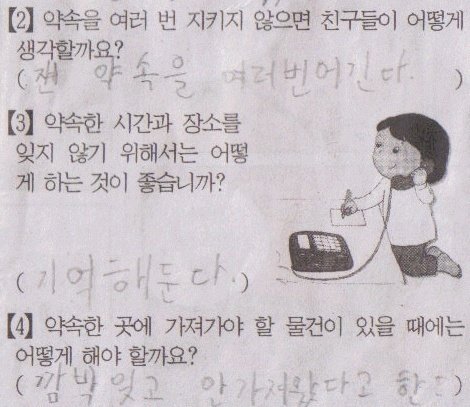 【2】 약속을 여러 번 지키지 않으면 친구들이 어떻게
생각할까요?
( 잰 약속을 여러번어긴다. )
【3】 약속한 시간과 장소를
잊지 않기 위해서는 어떻
게 하는 것이 좋습니까?
( 기억해둔다. )
【4】 약속한 곳에 가져가야 할 물건이 있을 때에는
어떻게 해야 할까요?
( 깜박잊고 안가저왔다고 한다 )